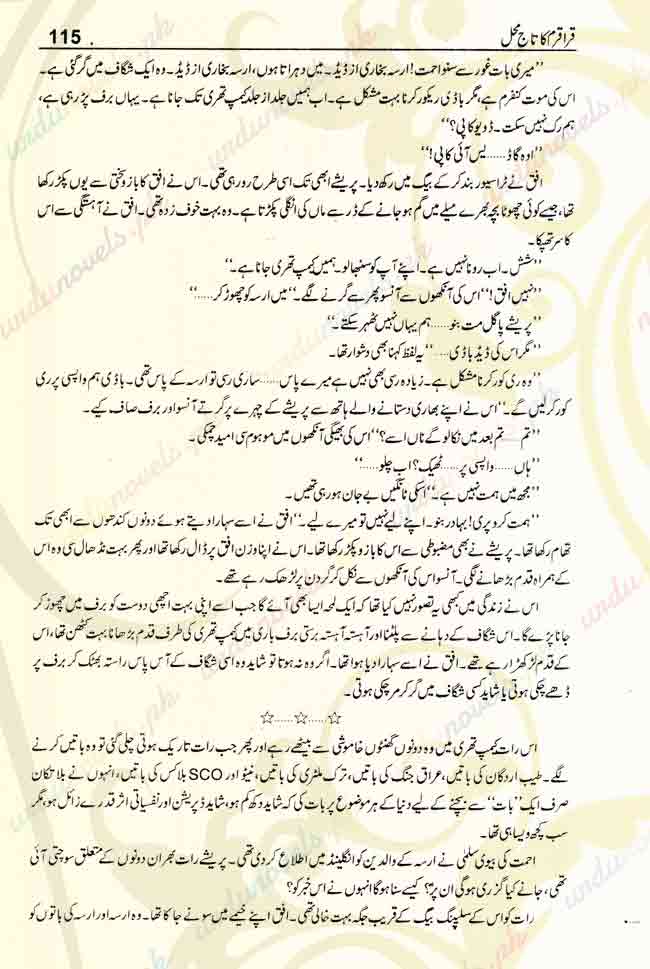 115 قراقرم کا تاج محل
’’میری بات غور سے سنو احمت! ارسہ بخاری از ڈیڈ۔ میں دہراتا ہوں، ارسہ بخاری از ڈیڈ۔ وہ ایک شگاف میں گر گئی ہے۔
اس کی موت کنفرم ہے، مگر باڈی ریکور کرنا بہت مشکل ہے۔ اب ہمیں جلد از جلد کیمپ تھری تک جانا ہے۔ یہاں برف پڑ رہی ہے،
ہم رک نہیں سکتے۔ ڈو یو کاپی؟‘‘
’’اوہ گاڈ......یس آئی کاپی!‘‘
افق نے ٹراسیور بند کر کے بیگ میں رکھ دیا۔ پریشے ابھی تک اسی طرح رو رہی تھی۔ اس نے افق کا بازو سختی سے یوں پکڑ رکھا
تھا، جیسے کوئی چھوٹا بچہ بھرے میلے میں گم ہو جانے کے ڈر سے ماں کی انگلی پکڑتا ہے۔ وہ بہت خوف زدہ تھی۔ افق نے آہستگی سے اس
کا سر تھپکا۔
’’شش۔ اب رونا نہیں ہے۔ اپنے آپ کو سنبھالو۔ ہمیں کیمپ تھری جانا ہے۔‘‘
’’نہیں افق!‘‘ اس کی آنکھوں سے آنسو پھر سے گرنے لگے۔ ’’میں ارسہ کو چھوڑ کر......‘‘
’’پریشے پاگل مت بنو......ہم یہاں نہیں ٹھہر سکتے۔‘‘
’’مگر اس کی ڈیڈ باڈی......‘‘ یہ لفظ کہنا بھی دشوار تھا۔
’’وہ ری کور کرنا مشکل ہے۔ زیادہ رسی بھی نہیں ہے میرے پاس......ساری رسی تو ارسہ کے پاس تھی۔ باڈی ہم واپسی پر ری
کور کر لیں گے۔‘‘ اس نے اپنے بھاری دستانے والے ہاتھ سے پریشے کے چہرے پر گرتے آنسو اور برف صاف کیے۔
’’تم......تم بعد میں نکالو گے ناں اسے؟‘‘ اس کی بھیگی آنکھوں میں موہوم سی امید چمکی۔
’’ہاں......واپسی پر......ٹھیک؟ اب چلو......‘‘
’’مجھ میں ہمت نہیں ہے۔‘‘ اسکی ٹانگیں بے جان ہو رہی تھیں۔
’’ہمت کرو پری! بہادر بنو۔ اپنے لیے نہیں تو میرے لیے۔‘‘ افق نے اسے سہارا دیتے ہوئے دونوں کندھوں سے ابھی تک
تھام رکھا تھا۔ پریشے نے بھی مضبوطی سے اس کا بازو پکڑ رکھا تھا۔ اس نے اپنا وزن افق پر ڈال رکھا تھا اور پھر بہت نڈھال سی وہ اس
کے ہمراہ قدم بڑھانے لگی۔ آنسو اس کی آنکھوں سے نکل کر گردن پر لڑھک رہے تھے۔
اس نے زندگی میں کبھی یہ تصور نہیں کیا تھا کہ ایک لمحہ ایسا بھی آئے گا جب اسے اپنی بہت اچھی دوست کو برف میں چھوڑ کر
جانا پڑے گا۔ اس شگاف کے دہانے سے پلٹنا اور آہستہ آہستہ برستی برف باری میں کیمپ تھری کی طرف قدم بڑھانا بہت کٹھن تھا، اس
کے قدم لڑکھڑا رہے تھے۔ افق نے اسے سہارا دیا ہوا تھا۔ اگر وہ نہ ہوتا تو شاید وہ اسی شگاف کے آس پاس راستہ بھٹک کر برف پر
ڈھے چکی ہوتی یا شاید کسی شگاف میں گر کر مر چکی ہوتی۔
☆......☆......☆
اس رات کیمپ تھری میں وہ دونوں گھنٹوں خاموشی سے بیٹھے رہے اور پھر جب رات تاریک ہوتی چلی گئی تو وہ باتیں کرنے
لگے۔ طیب اردگان کی باتیں، عراق جنگ کی باتیں، ترک ملٹری کی باتیں، نیٹو اور SCO بلاکس کی باتیں، انہوں نے بلا تکان
صرف ایک ’’بات‘‘ سے بچنے کے لیے دنیا کے ہر موضوع پر بات کی کہ شاید دکھ کم ہو، شاید ڈپریشن اور نفسیاتی اثر قدرے زائل ہو، مگر
سب کچھ ویسا ہی تھا۔
احمت کی بیوی سلمیٰ نے ارسہ کے والدین کو انگلینڈ میں اطلاع کر دی تھی۔ پریشے رات بھر ان دونوں کے متعلق سوچتی آئی
تھی، جانے کیا گزری ہو گی ان پر؟ کیسے سنا ہو گا انہوں نے اس خبر کو؟
رات کو اس کے سلیپنگ بیگ کے قریب جگہ بہت خالی تھی۔ افق اپنے خیمے میں سونے جا چکا تھا۔ وہ ارسہ اور ارسہ کی باتوں کو